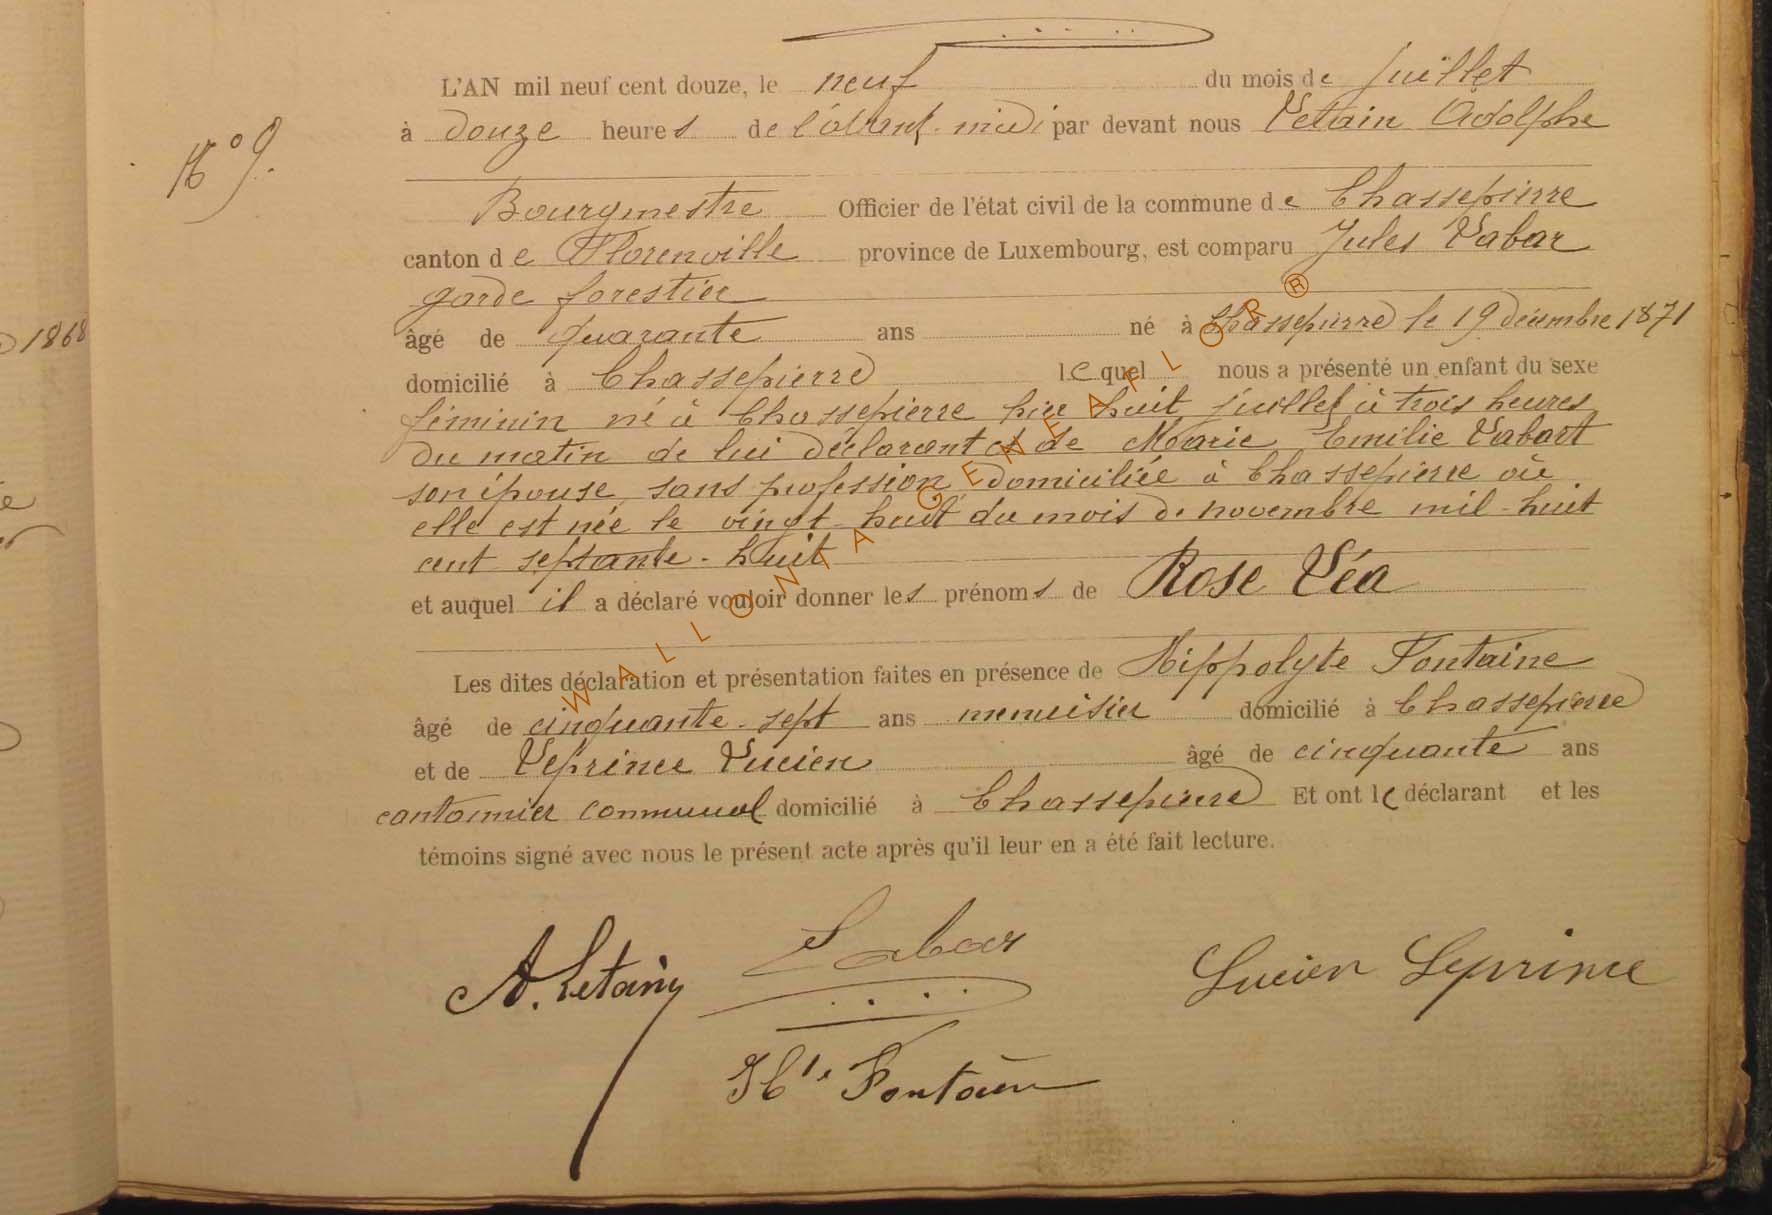 L'AN mil neuf cent douze, le neuf du mois de juillet
à douze heures de l'avant-midi par devant nous Letain Adolphe
N° 9.
Bourgmestre Officier de l'état civil de la commune de Chassepierre
canton de Florenville province de Luxembourg, est comparu Jules Labar
garde forestier
âgé de quarante ans né à Chassepierre le 19 décembre 1871
1868
domicilié à Chassepierre lequel nous a présenté un enfant du sexe
féminin né à Chassepierre hier huit juillet à trois heures
du matin de lui déclarant et de Marie Emilie Labart
son épouse, sans profession domiciliée à Chassepierre où
elle est née le vingt-huit du mois de novembre mil-huit
cent septante-huit
et auquel il a déclaré vouloir donner les prénoms de Rose Léa
Les dites déclaration et présentation faites en présence de Hippolyte Fontaine
âgé de cinquante-sept ans menuisier domicilié à Chassepierre
et de Leprince Lucien âgé de cinquante ans
cantonnier communal domicilié à Chassepierre Et ont le déclarant et les
témoins signé avec nous le présent acte après qu'il leur en a été fait lecture.
A. Letain Labar Lucien Leprince
Hte Fontain
WALLONIA GENEAFLOR ®